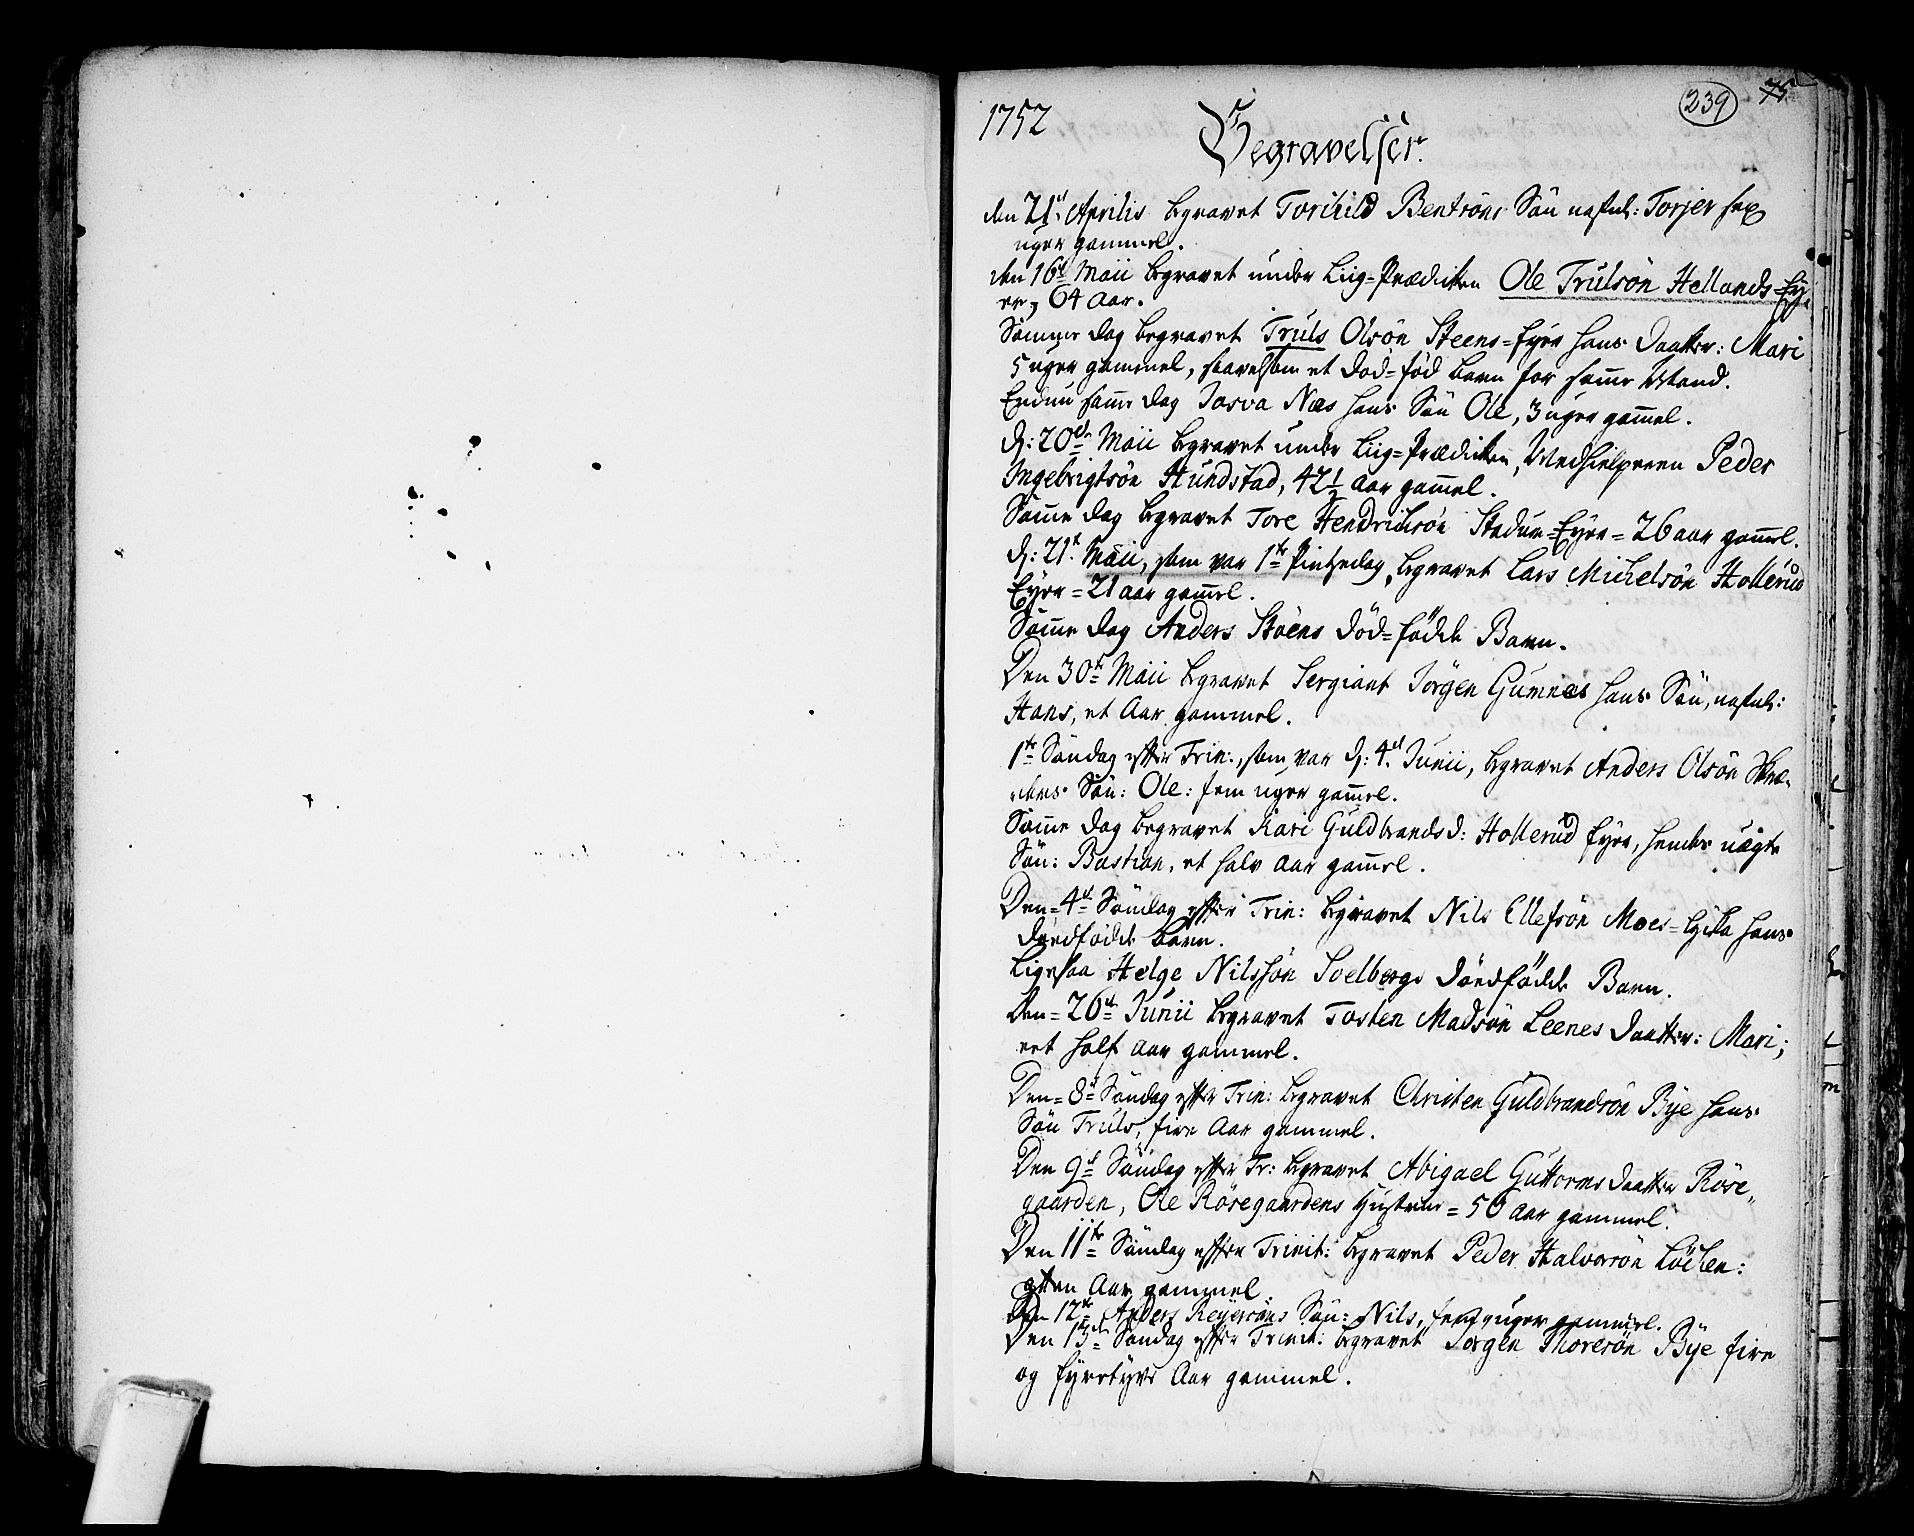 239 75
1752
Begravelser.
den 21de Aprilis begravet Torchild Bentsöns Sön nafnl: Torjer sex
uger gammel.
den 16de Maii begravet under Liig=Prædicken Ole Trulsön Hellands=Ey-
er, 64 Aar.
Samme dag begravet Truls Olsön Steens=Eyer hans Daatter: Mari
5 uger gammel, saavelsom et död=föd barn for samme Mand.
Endnu samme dag Josva Næs hans Sön Ole, 3 uger gam̄el.
d: 20de Maii begravet under Liig=Prædicken, Medhielperen Peder
Ingebrigtsön Hundstad, 42 1/2 Aar gam̄el.
Sam̄e dag begravet Tore Hendrichsön Stadum=Eyer = 26 aar gam̄el.
d: 21de Maii, som var 1te Pintzedag, begravet Lars Michelsön Hollerud
Eyer = 21 aar gam̄el.
Sam̄e dag Anders Skoens död=födde Barn.
Den 30te Maii begravet Sergiant Jörgen Gumnæs hans Sön, nafnl:
Hans, et Aar gammel.
1te Söndag efter Trin:, som var d: 4de Junii, begravet Anders Olsön Skræ-
ckens Sön: Ole: fem uger gam̄el.
Sam̄e dag begravet Kari Guldbrandsd: Hollerud Eyer, hendes uægte
Sön: Bastian, et halv Aar gam̄el.
Den 4de Söndag efter Trin: begravet Nils Ellefsön Moes=Eje hans
dödfödde barn.
Ligesaa Helge Nilssön Soelbergs dödfödde Barn.
Den 26de Junii begravet Tosten Madsön Leenes Daatter: Mari;
eet half Aar gammel.
Den 8de Söndag efter Trin: begravet Christen Guldbrandsön Bye hans
Sön Truls, fire Aar gammel.
Den 9de Söndag efter Tr: begravet Abigael Guttorms Daatter Röse-
gaarden, Ole Rösegaardens Hustrue = 50 Aar gammel.
Den 11te Söndag efter Trinit: begravet Peder Halvorsön Löchen:
Aar gammel.
Den 12te Anders Reyersöns Sön: Nils, uger gammel.
Den 13de Söndag efter Trinit: begravet Jörgen Thoresön Bye fire
og fyretyve Aar gammel.